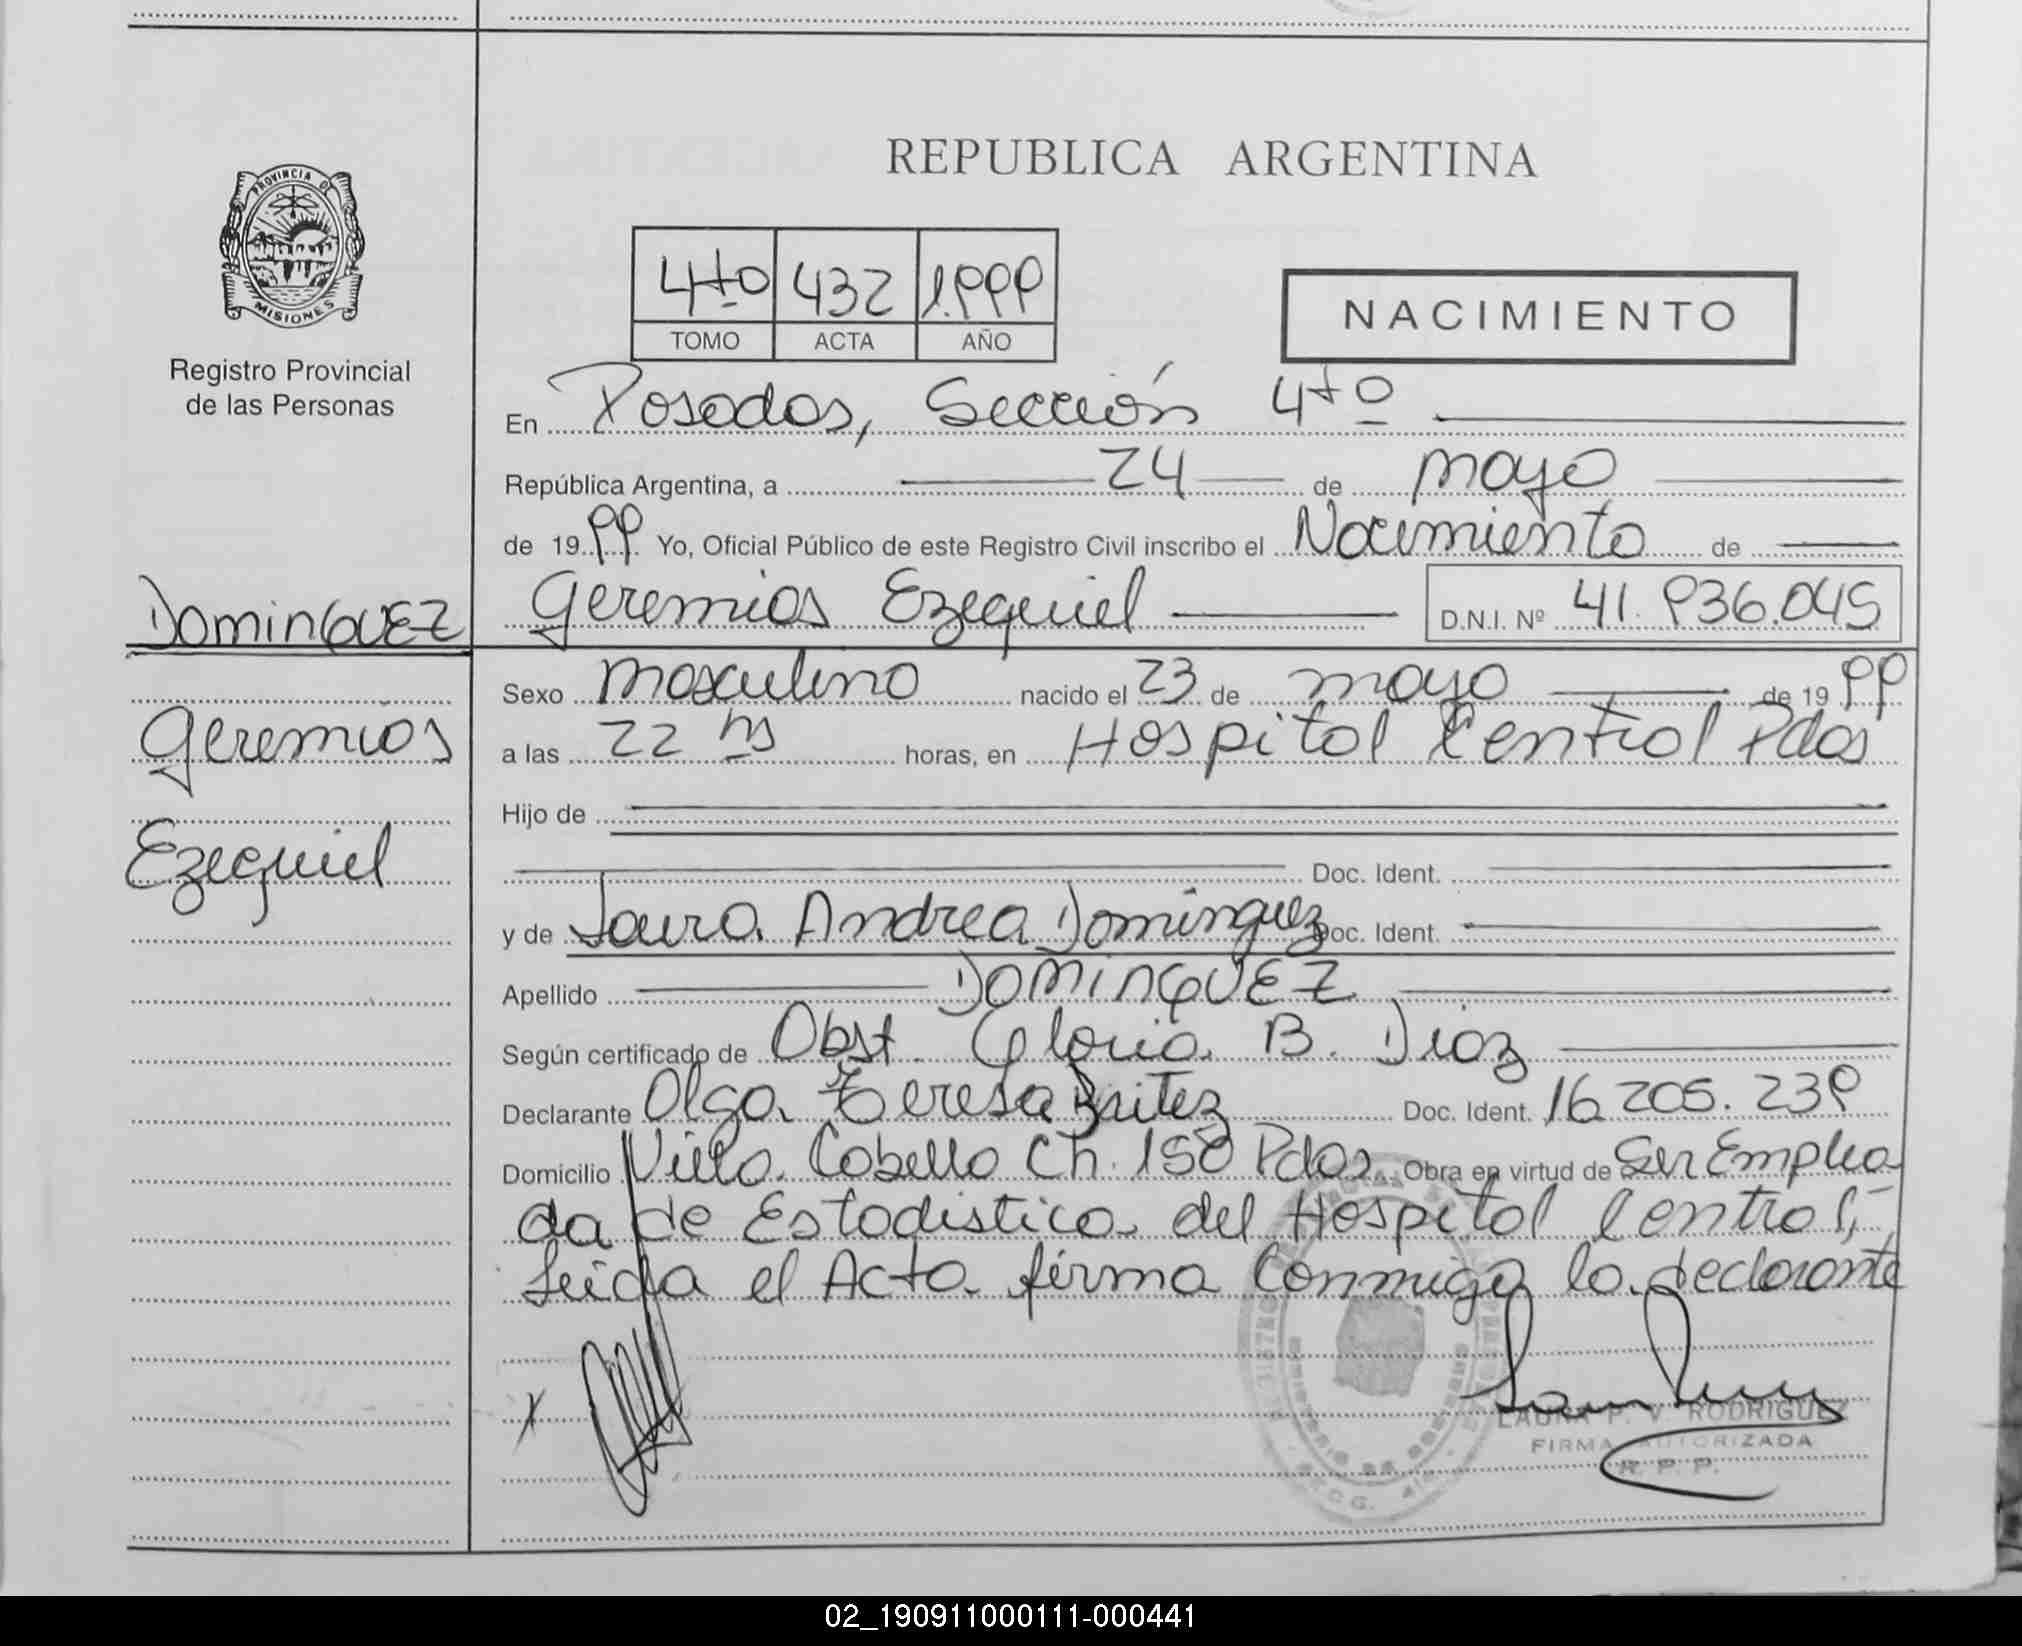 PROVINCIA DE
MISIONES
Registro Provincial
de las Personas
REPUBLICA ARGENTINA
4to 432 1.999
TOMO ACTA AÑO
NACIMIENTO
En Posadas, Sección 4to
República Argentina, a 24 de mayo
de 1999 Yo, Oficial Público de este Registro Civil inscribo el Nacimiento de
DOMINGUEZ
Geremias Ezequiel D.N.I. Nº 41.936.045
Sexo masculino nacido el 23 de mayo de 1999
Geremias
Ezequiel
a las 22 hs horas, en Hospital Central Pdas
Hijo de
Doc. Ident.
y de Laura Andrea Dominguez Doc. Ident.
Apellido DOMINGUEZ
Según certificado de Obst. Gloria B. Diaz
Declarante Olga Teresa Britez Doc. Ident. 16.205.239
Domicilio Villa Cabello Ch. 150 Pdas Obra en virtud de Ser Emplea
da de Estadistica del Hospital Central,
Leida el Acta firma Conmigo la declarante
X
LAURA P. V. RODRIGUEZ
FIRMA AUTORIZADA
R. P. P.
02_190911000111-000441